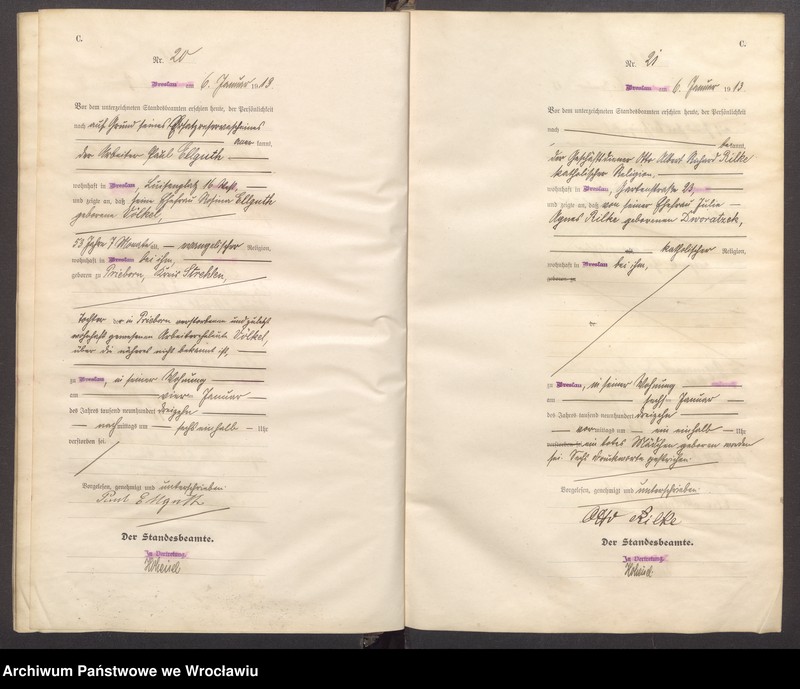 C.
Nr. 20
Breslau am 6. Januar 1913.
Vor dem unterzeichneten Standesbeamten erschien heute, der Persönlichkeit
nach auf Grund seines Ersatzreservescheines
kannt,
der Arbeiter Paul Ellguth
wohnhaft in Breslau, 16
und zeigte an, daß seine Ehefrau Rosina Ellguth
geborene Völkel,
53 Jahre 7 Monate alt, evangelischer Religion,
wohnhaft in Breslau bei ihm,
geboren zu Prieborn, Kreis Strehlen,
Tochter der in Prieborn verstorbenen und zuletzt
wohnhaft gewesenen Arbeiterseheleute Völkel,
über die näheres nicht bekannt ist,
zu Breslau, in seiner Wohnung
am vier Januar
des Jahres tausend neunhundert dreizehn
nachmittags um sechs einhalb Uhr
verstorben sei.
Vorgelesen, genehmigt und unterschrieben.
Paul Ellguth
Der Standesbeamte.
In Vertretung.
C.
Nr. 21
Breslau am 6. Januar 1913.
Vor dem unterzeichneten Standesbeamten erschien heute, der Persönlichkeit
nach
bekannt,
der Geschäftsdiener Otto Albert Richard Rilke
katholischer Religion,
wohnhaft in Breslau, Gartenstraße 23,
und zeigte an, daß von seiner Ehefrau Julie
Agnes Rilke geborenen Dworatzek,
alt, katholischer Religion,
wohnhaft in Breslau bei ihm,
geboren zu
der
zu Breslau, in seiner Wohnung
am sechs Januar
des Jahres tausend neunhundert dreizehn
vormittags um ein einhalb Uhr
verstorben sei ein totes Mädchen geboren worden
sei. Sechs Druckworte gestrichen.
Vorgelesen, genehmigt und unterschrieben.
Otto Rilke
Der Standesbeamte.
In Vertretung.
Archiwum Państwowe we Wrocławiu